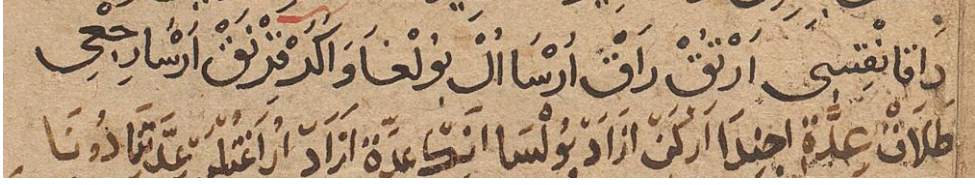 دَاقَا نَفْقَسِى اَرْتُقْ رَاقْ اَرْسَا اُلْ بُولْغَا وَاَكَرْ قِرْنَقْ اَرْسَا رِجْعِى
طَلَاقْ عِدَّةْ اجِنْدَا اَركَنْ ازَادْ بُولْسَا انِكْ عِدَّة ازَادْ اُرَاغُتْلَرْ دُونَا